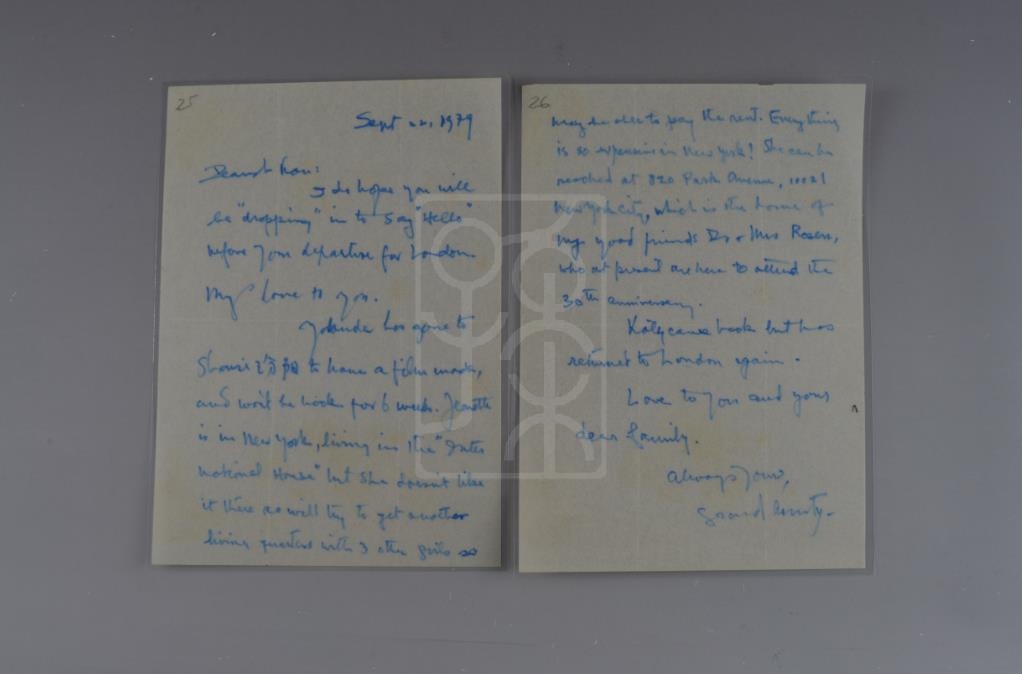 25
Sept 22, 1979
Dearest
I do hope you will
be "dropping" in to say "Hello"
before your departure for London.
My love to you.
Yolanda has gone to
to have a film made,
and won't be back for 6 weeks. Jeanette
is in New York, living in the "Inter
national House" but she doesn't like
it there so will try to get another
living quarters with 3 other girls so
26
may be able to pay the rent. Everything
is so expensive in New York! She can be
reached at 820 Park Avenue, 10021
New York City, which is the home of
my good friends Dr & Mrs Rosen,
who at present are here to attend the
30th anniversary.
Katy came back but has
returned to London again.
Love to you and your
dear family.
Always yours,